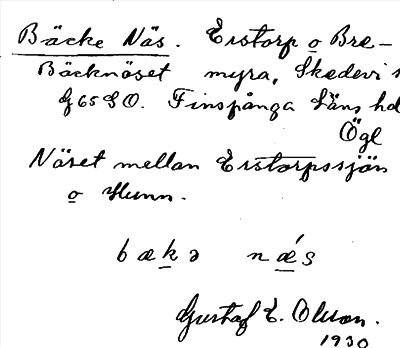 Bäcke Näs. Erstorp o Bre-
Bäcknäset myra, Skedevi s
G65SO. Finspånga läns hd
Ögl
Näset mellan Erstorpssjön
o Hunn.
bækə nǽs
Gustaf E. Olsson.
1930